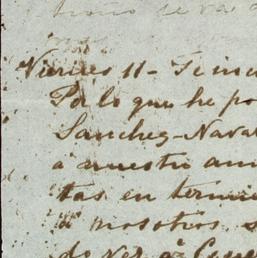 Viernes 11 - Te in
Por lo que he po
Sanchez-Nava
á nuestro am
tas en termi
á nosotros, s
de Ver. qe